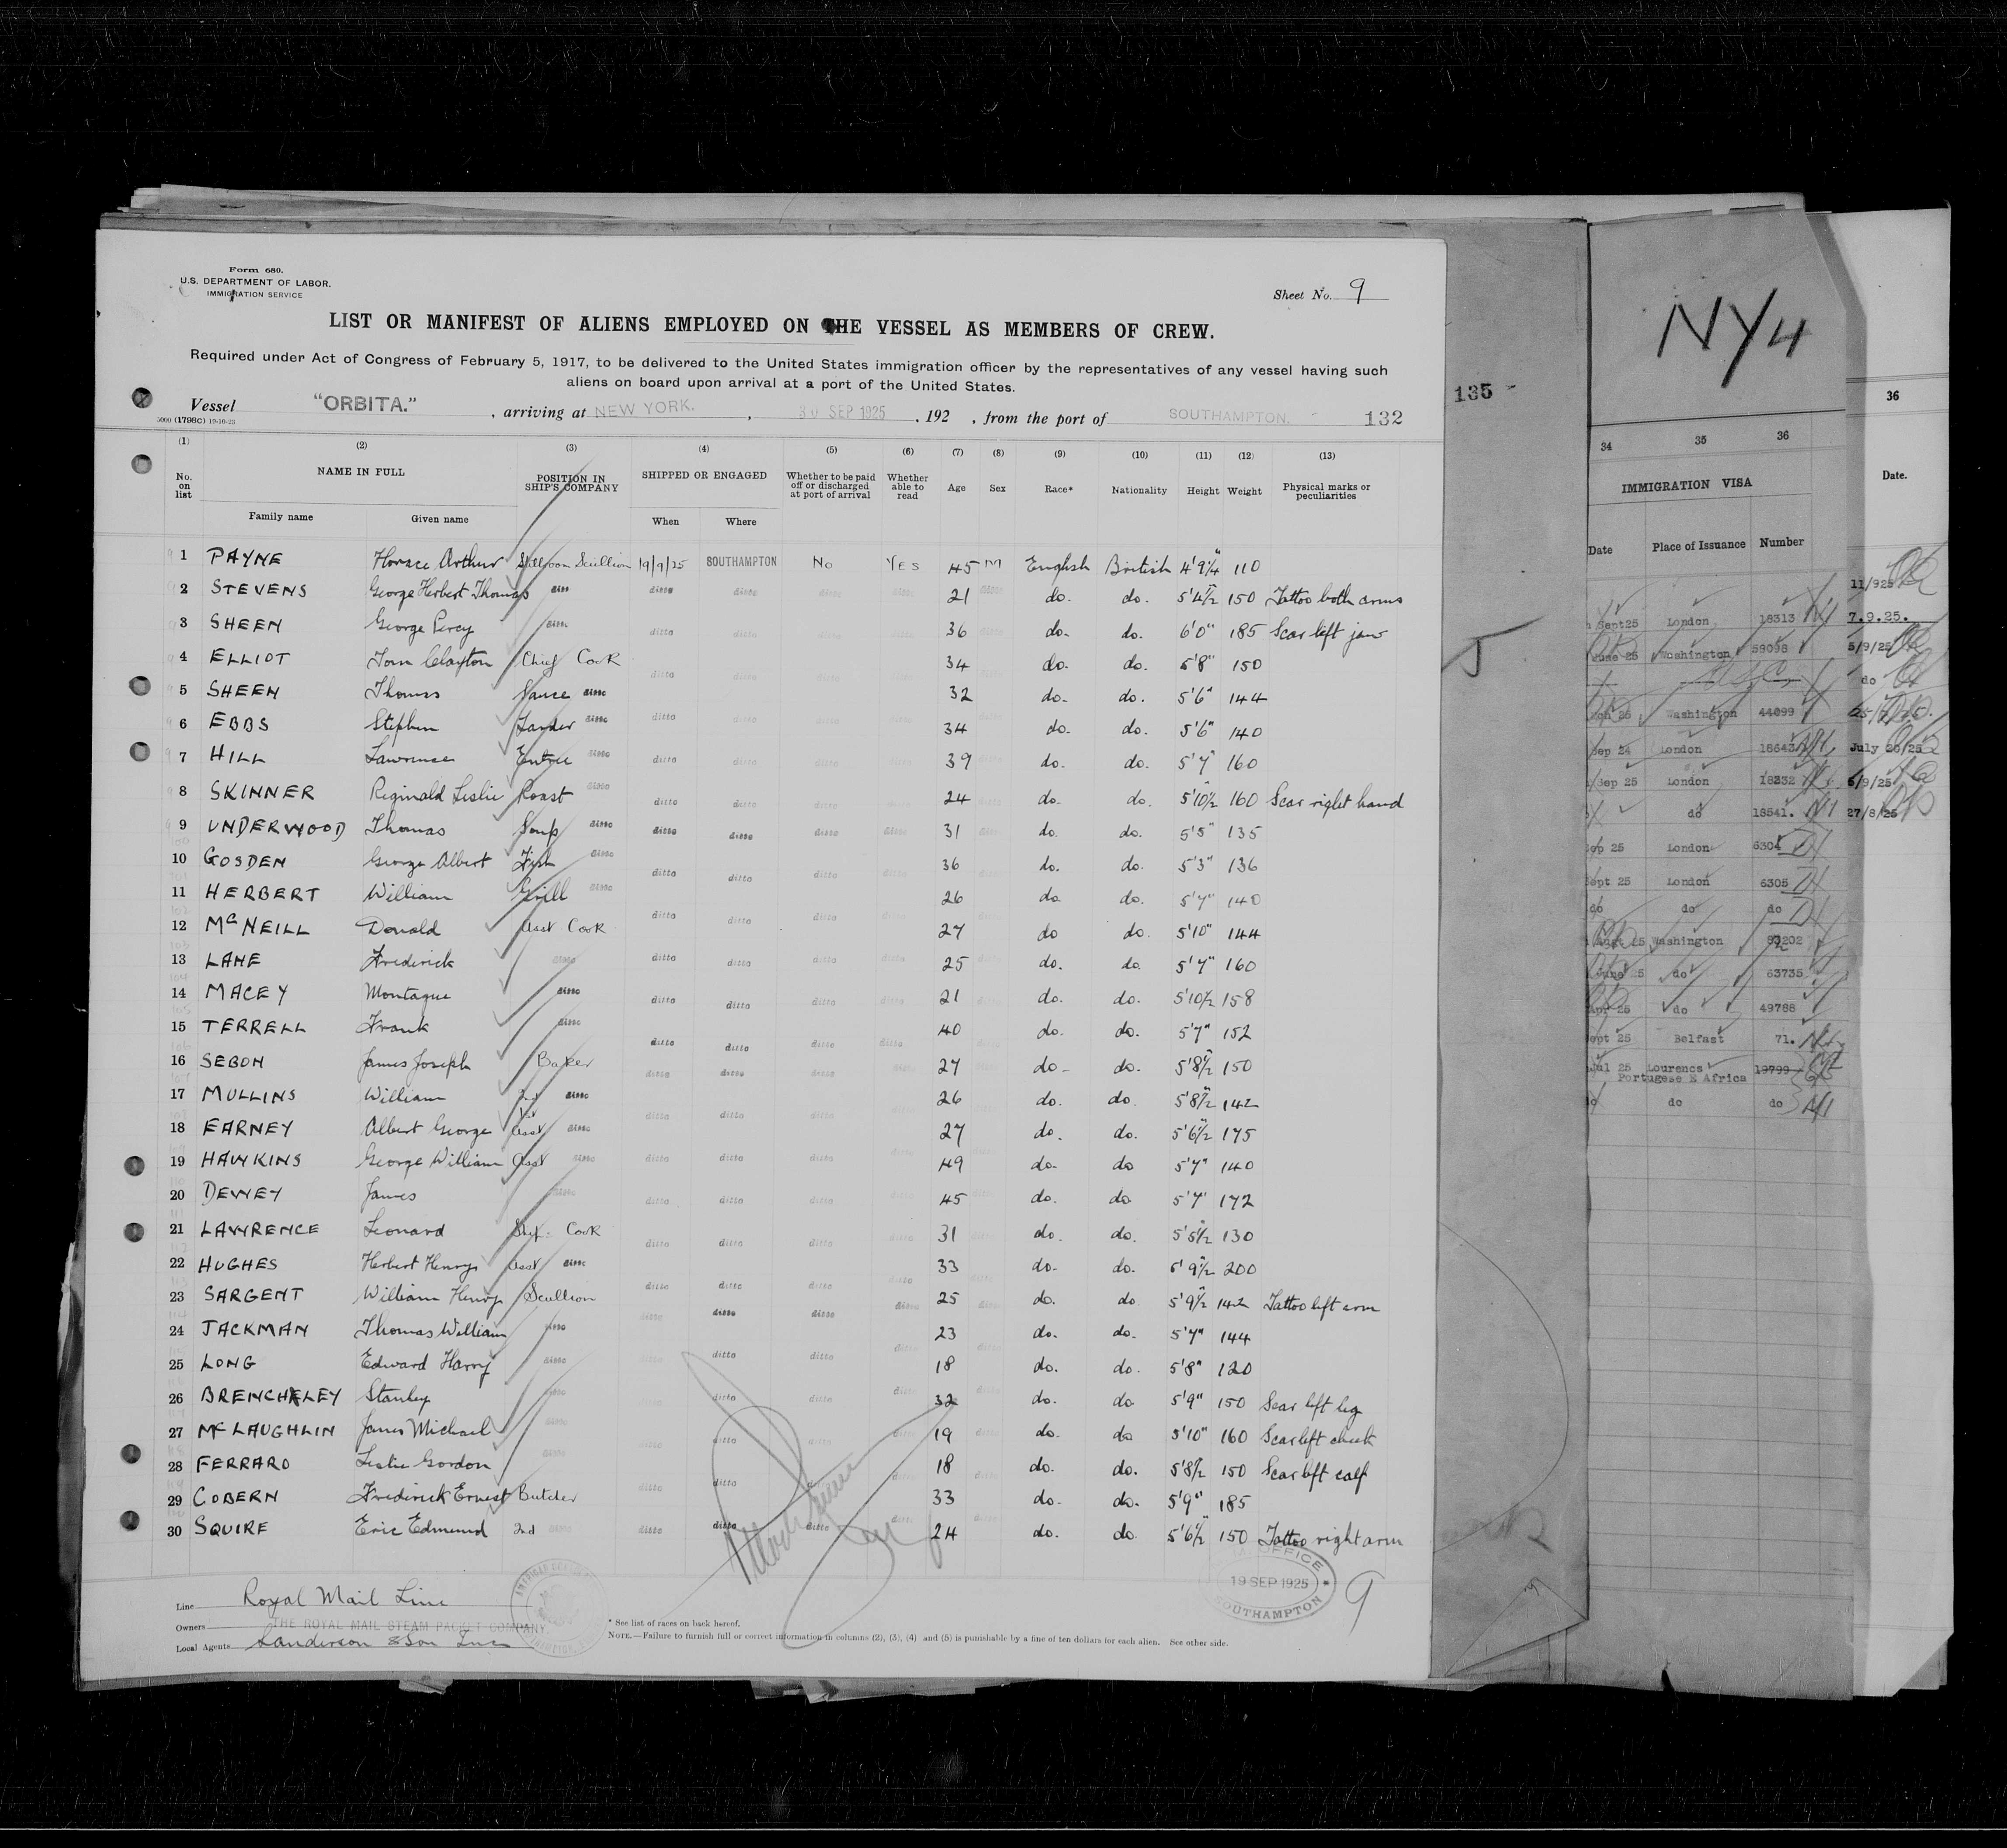 Form 680.
U.S. DEPARTMENT OF LABOR.
IMMIGRATION SERVICE
Sheet No. 9
LIST OR MANIFEST OF ALIENS EMPLOYED ON THE VESSEL AS MEMBERS OF CREW.
Required under Act of Congress of February 5, 1917, to be delivered to the United States immigration officer by the representatives of any vessel having such
aliens on board upon arrival at a port of the United States.
Vessel "ORBITA." , arriving at NEW YORK. , 30 SEP 1925 , 192 , from the port of SOUTHAMPTON. 132
5000 (1798C) 19-10-23
(1) (2) (3) (4) (5) (6) (7) (8) (9) (10) (11) (12) (13)
No. on list NAME IN FULL POSITION IN SHIP'S COMPANY SHIPPED OR ENGAGED Whether to be paid off or discharged at port of arrival Whether able to read Age Sex Race* Nationality Height Weight Physical marks or peculiarities
Family name Given name When Where
1 PAYNE Horace Arthur Scullion 19/9/25 SOUTHAMPTON No YES 45 M English British 4'9¼" 110
2 STEVENS George Herbert Thomas ditto ditto ditto ditto ditto 21 ditto do. do. 5'4½" 150 Tattoo both arms
3 SHEEN George Percy ditto ditto ditto ditto 36 do. do. 6'0" 185 Scar left jaw
4 ELLIOT Tom Clayton Chief Cook ditto 34 do. do. 5'8" 150
5 SHEEN Thomas Sauce ditto 32 do. do. 5'6" 144
6 EBBS Stephen Larder ditto ditto 34 do. do. 5'6" 140
7 HILL Lawrence Entree ditto ditto ditto ditto 39 do. do. 5'7" 160
8 SKINNER Reginald Leslie Roast ditto ditto ditto ditto 24 do. do. 5'10½" 160 Scar right hand
9 UNDERWOOD Thomas Soup ditto ditto ditto ditto ditto 31 do. do. 5'5" 135
10 GOSDEN George Albert Fish ditto ditto ditto ditto 36 do. do. 5'3" 136
11 HERBERT William Grill ditto 26 do. do. 5'7" 140
12 McNEILL Donald Asst Cook ditto ditto ditto 27 do do. 5'10" 144
13 LANE Frederick ditto ditto ditto ditto 25 do. do. 5'7" 160
14 MACEY Montague ditto ditto ditto ditto ditto 21 do. do. 5'10½ 158
15 TERRELL Frank ditto ditto ditto ditto ditto 40 do. do. 5'7" 152
16 SEBON James Joseph Baker ditto ditto ditto 27 do. do. 5'8½" 150
17 MULLINS William 2nd ditto ditto ditto 26 do. do. 5'8½" 142
18 EARNEY Albert George Asst ditto 27 do. do. 5'6½" 175
19 HAWKINS George William Asst ditto ditto ditto ditto 49 do. do 5'7" 140
20 DEWEY James ditto ditto ditto ditto 45 do. do 5'7" 172
21 LAWRENCE Leonard Cook ditto ditto ditto 31 do. do. 5'5½" 130
22 HUGHES Herbert Henry Asst ditto ditto ditto ditto 33 do. do. 200
23 SARGENT William Henry Scullion ditto ditto ditto 25 do. do 5'9½" 142 Tattoo left arm
24 JACKMAN Thomas William ditto 23 do. do. 5'7" 144
25 LONG Edward Harry ditto ditto ditto 18 do. do. 5'8" 120
26 BRENCHLEY Stanley ditto ditto ditto ditto 32 do. do 5'9" 150 Scar left leg
27 McLAUGHLIN James Michael ditto ditto ditto 19 do. do 5'10" 160 Scar left cheek
28 FERRARO Leslie Gordon ditto ditto ditto 18 do. do. 5'8½ 150 Scar left calf
29 COBERN Frederick Ernest Butcher 33 do. do. 5'9" 185
30 SQUIRE Eric Edmund 2nd ditto ditto ditto ditto 24 do. do. 5'6½" 150 Tattoo right arm
Line Royal Mail Line
Owners THE ROYAL MAIL STEAM PACKET COMPANY.
Local Agents Sanderson & Son Inc
* See list of races on back hereof.
NOTE.—Failure to furnish full or correct information in columns (2), (3), (4) and (5) is punishable by a fine of ten dollars for each alien. See other side.
OFFICE
19 SEP 1925
SOUTHAMPTON
9
135
NY4
34 35 36
IMMIGRATION VISA
Date Place of Issuance Number
Sept 25 London 18313
June 25 Washington 58098
25 Washington 44099
Sep 24 London 18643
Sep 25 London 18232
do 18541.
Sep 25 London 6304
Sept 25 London 6305
do do do
Augt 25 Washington
June 25 do 63735
Apr 25 do 49788
Sept 25 Belfast 71.
Jul 25 Lourencs 19799
Portugese E Africa
do do
36
Date.
11/925
7.9.25.
5/9/25
do
July 20/25
5/9/25
27/8/25